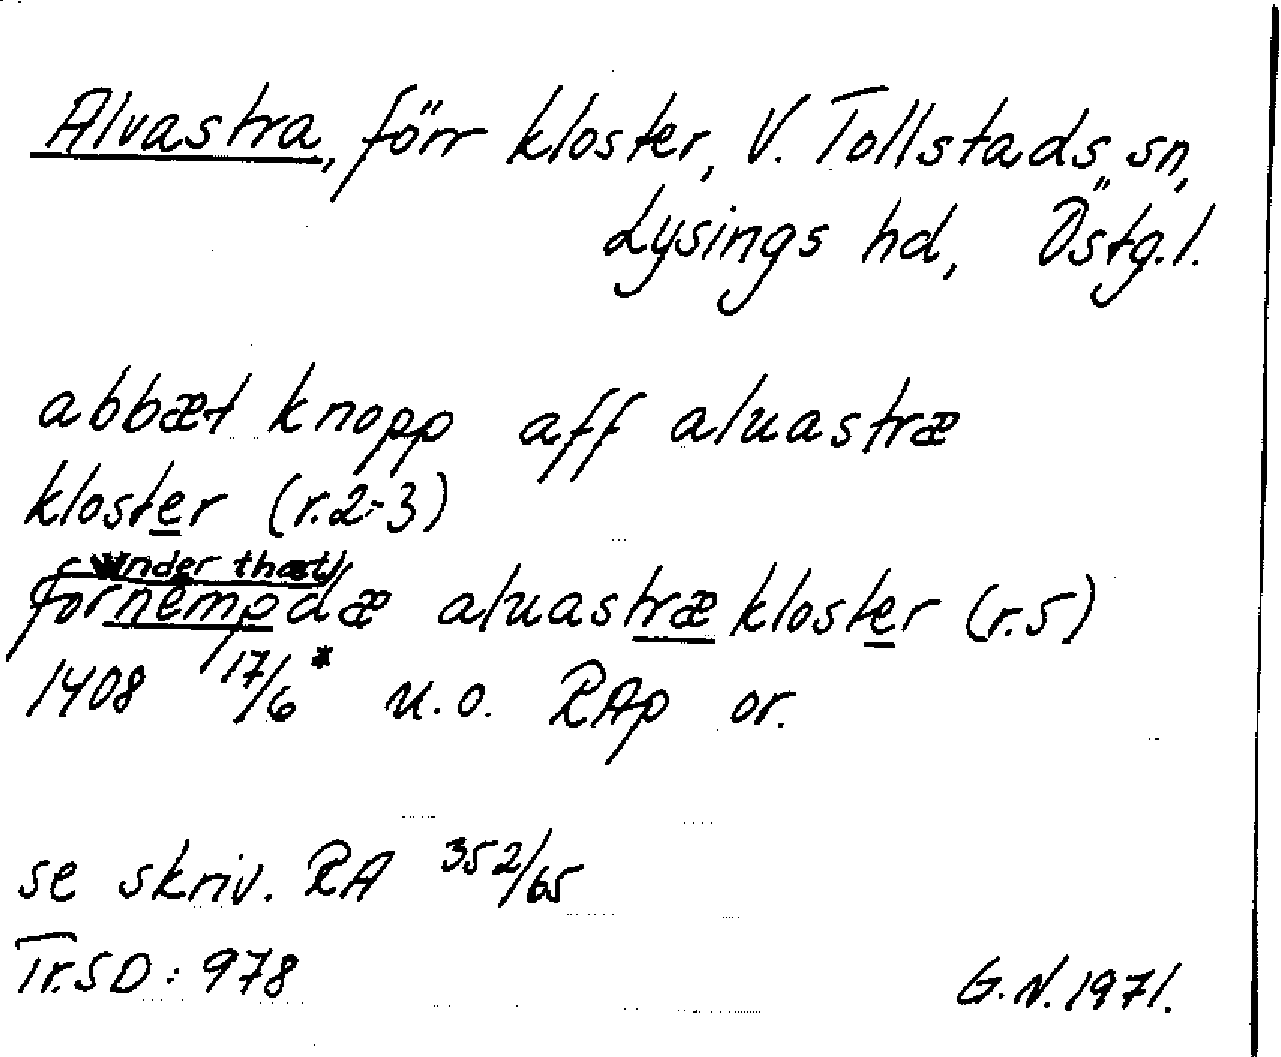 Alvastra, förr kloster, V. Tollstads sn,
Lysings hd, Östg.l.
abbæt knopp aff aluastræ
kloster (r.2-3)
(vnder thæt)
fornempdæ aluastræ kloster (r.5)
1408 17/6* u.o. RAp or.
se skriv. RA 352/65
Tr. SD: 978
G.N. 1971.